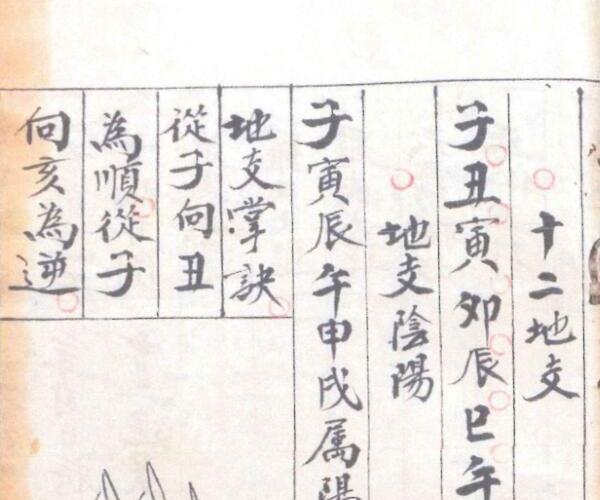 十二地支
子丑寅卯辰巳午
地支陰陽
子寅辰午申戌属陽
地支掌訣
從子向丑
為順從子
向亥為逆